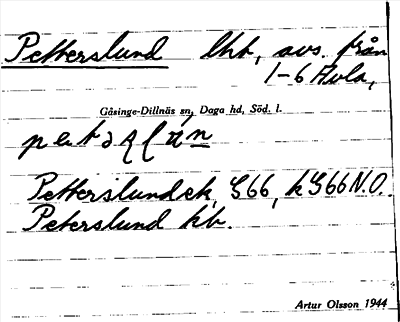 Petterslund lht, avs. från
1-6 Avla,
Gåsinge-Dillnäs sn, Daga hd, Söd. l.
Petterslund ek, G66, hG66 N.O.
Peterslund kb.
Artur Olsson 1944